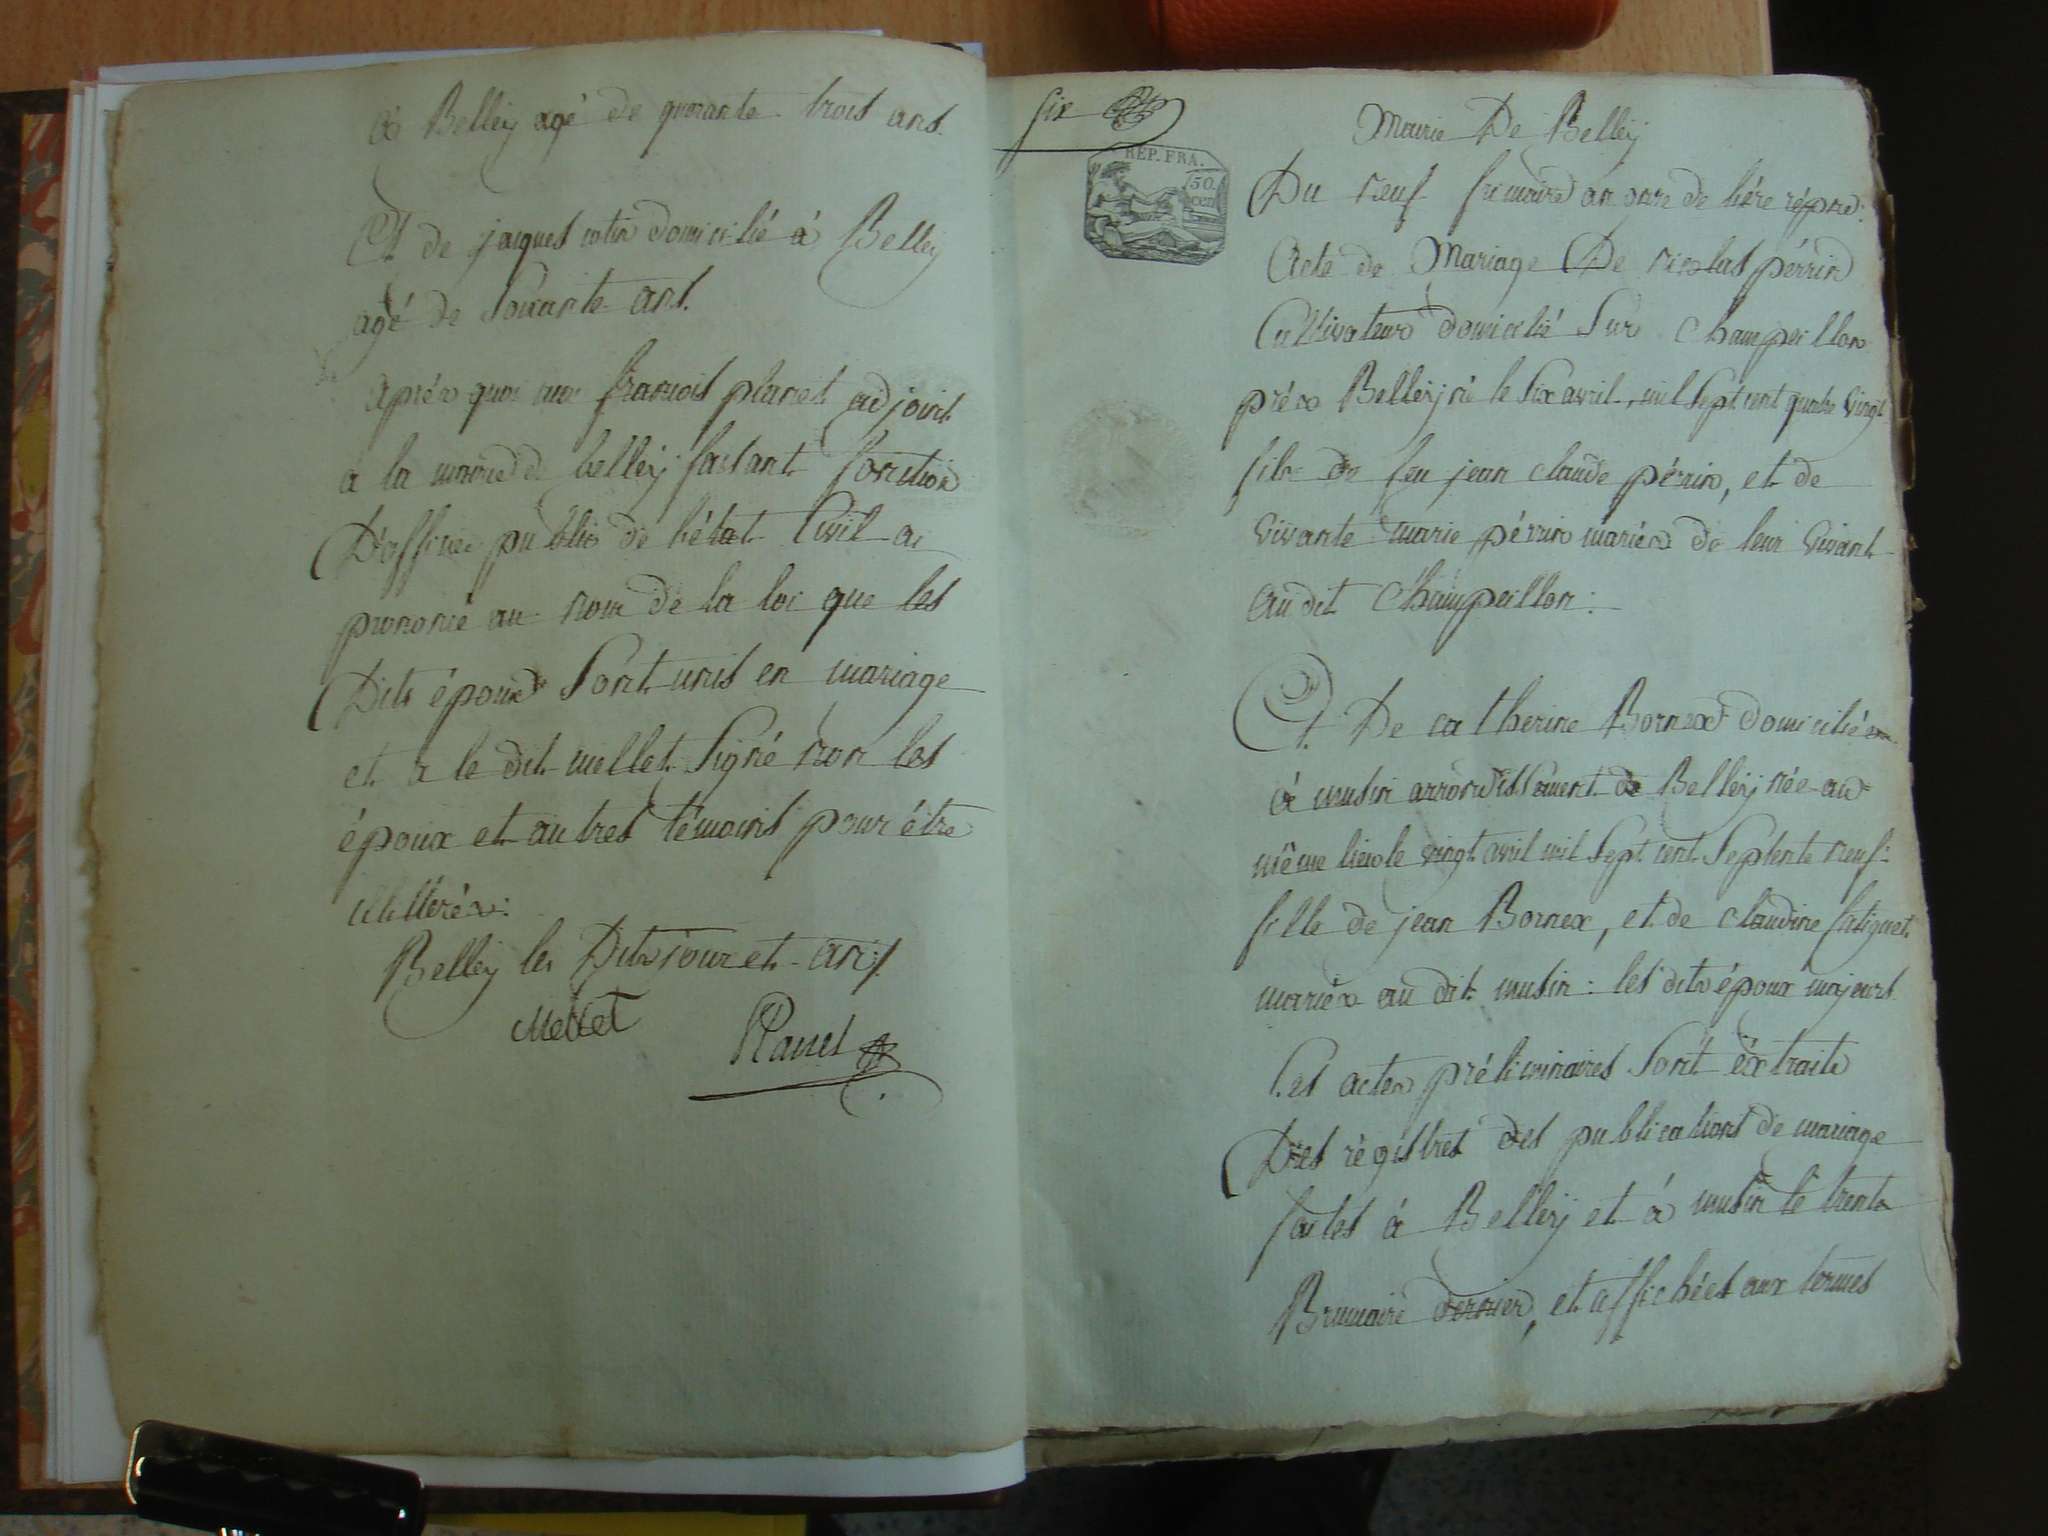 à Belley agé de quarante trois ans.
Et de jacques cotin domicilié à Belley
agé de soixante ans.
après quoi moi francois planet adjoint
a la mairie de belley faisant fonction
D'officier public de l'état Civil ai
prononcé au nom de la loi que les
Dits époux sont unis en mariage
et a le dit mellet signé non les
époux et autres témoins pour être
illitérés:
Belley les Dits jour et an./.
Mellet
Planet
six
REP. FRA.
50
cen
Mairie De Belley
Du neuf frimaire an onze de l'ére répne:
Acte de Mariage De nicolas pérrin
Cultivateur domicilié sur Champeillon
prés Belley né le six avril mil sept cent quatre vingt
fils de feu jean claude pérrin, et de
vivante marie pérrin mariés de leur vivant
audit Champeillon:
Et De catherine Bornex domiciliée
à musin arrondissement de Belley née au
même lieu le vingt avril mil sept cent septente neuf
fille de jean Bornex, et de claudine
mariés au dit musin: les dits époux majeurs
Les actes préliminaires sont éxtraits
Des régistres des publications de mariage
faites à Belley et à musin le trente
Brumaire dernier, et affichées aux termes